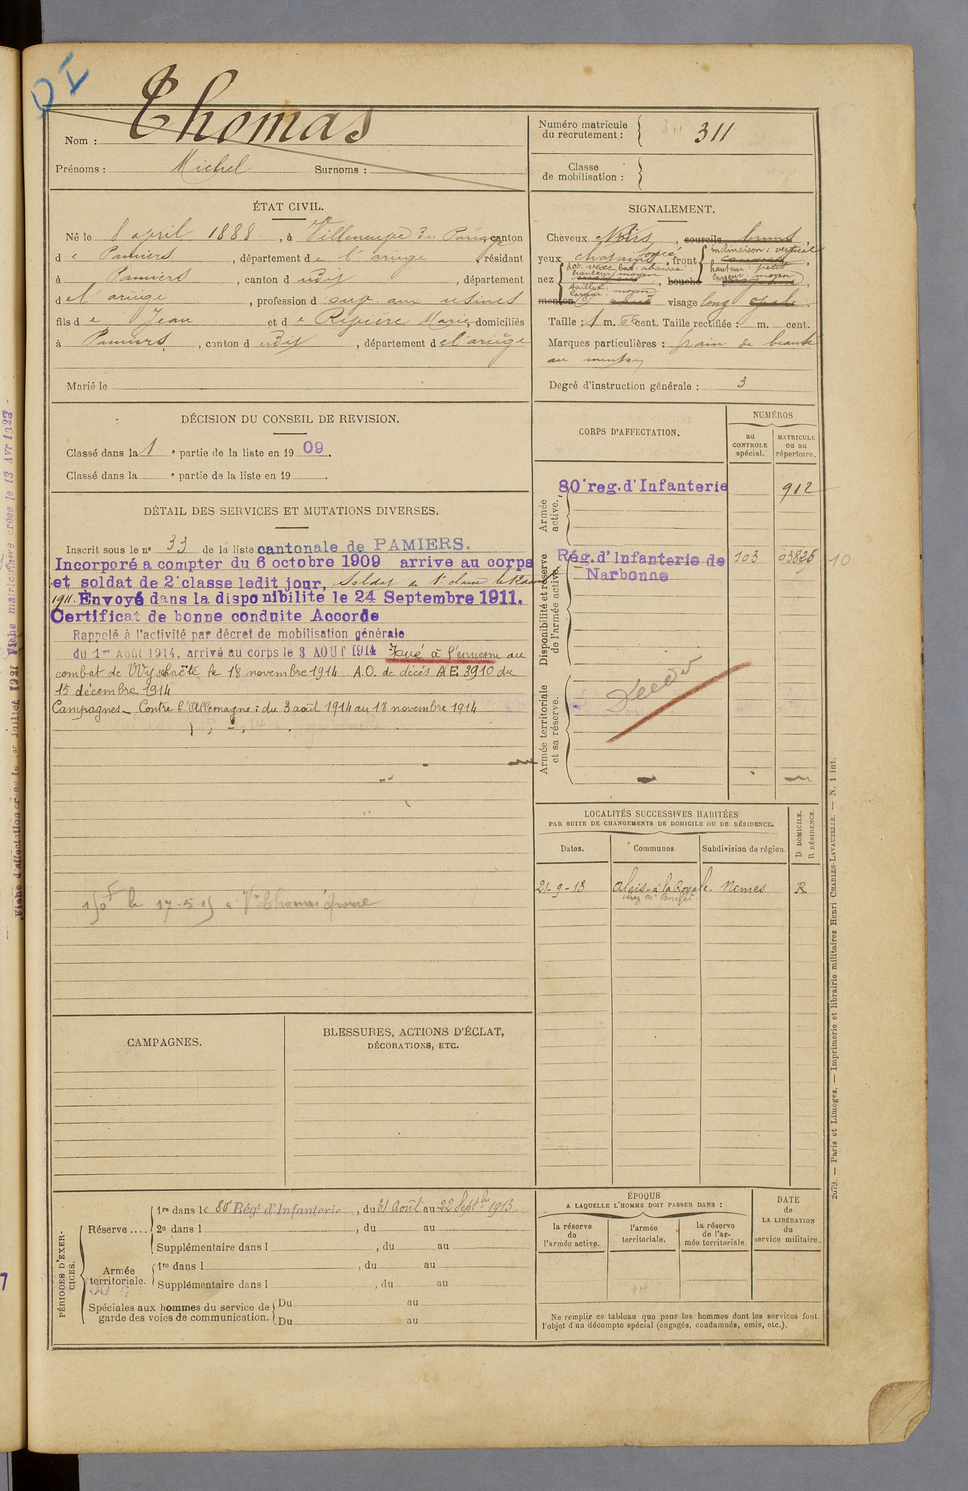 DI
Nom : Thomas
Prénoms : Michel Surnoms :
Numéro matricule du recrutement : 311
Classe de mobilisation :
ÉTAT CIVIL.
Né le 8 april 1888, à Villeneuve du canton
de Pamiers, département de l'ariège, résidant
à Pamiers, canton d udit, département
de l'ariège, profession d aux usines
fils de Jean et de Marie, domiciliés
à Pamiers, canton d udit, département de l'ariège
Marié le
SIGNALEMENT.
Cheveux Noirs, sourcils bruns,
yeux chatains foncé, front inclinaison : verticale
hauteur : petit
largeur : moyen
nez dos vexe bas : abaissé
hauteur : moyen
saillie
largeur moyen
, bouche
menton visage long
Taille : 1 m. cent. Taille rectifiée : m. cent.
Marques particulières : grain de beauté
au menton
Degré d'instruction générale : 3
DÉCISION DU CONSEIL DE REVISION.
Classé dans la 1e partie de la liste en 1909.
Classé dans la e partie de la liste en 19 .
DÉTAIL DES SERVICES ET MUTATIONS DIVERSES.
Inscrit sous le n° 33 de la liste cantonale de PAMIERS.
Incorporé a compter du 6 octobre 1909 arrive au corps
et soldat de 2e classe ledit jour, Soldat de 1e classe le
1911. Envoyé dans la disponibilité le 24 Septembre 1911.
Certificat de bonne conduite Accorde
Rappelé à l'activité par décret de mobilisation générale
du 1er Août 1914, arrivé au corps le 3 AOUT 1914 Tué à l'ennemi au
combat de Wytschaëte le 18 novembre 1914 A.O. de décès AE. 3910 du
15 décembre 1914
Campagnes - Contre l'Allemagne : du 3 août 1914 au 18 novembre 1914
150F le 17-5-15 à Vve Thomas
CORPS D'AFFECTATION.
NUMÉROS
au CONTROLE spécial.
MATRICULE ou au répertoire.
Armée active.
80e reg. d'Infanterie 912
Disponibilité et réserve de l'armée active.
Rég. d'Infanterie de Narbonne 103 03826 10
Armée territoriale et sa réserve.
Décédé
LOCALITÉS SUCCESSIVES HABITÉES
PAR SUITE DE CHANGEMENTS DE DOMICILE OU DE RÉSIDENCE.
Dates. Communes. Subdivision de région. D DOMICILE. R RÉSIDENCE.
21-9-13 Alais à la Royale Nimes R
chez Mr
CAMPAGNES.
BLESSURES, ACTIONS D'ÉCLAT,
DÉCORATIONS, ETC.
PÉRIODES D'EXERCICES.
Réserve....
1re dans le 80 Rég! d'Infanterie, du 31 Août au 22 Septbre 1913.
2e dans l , du au
Supplémentaire dans l , du au
Armée territoriale.
1re dans l , du au
Supplémentaire dans l , du au
Spéciales aux hommes du service de garde des voies de communication.
Du au
Du au
ÉPOQUE
A LAQUELLE L'HOMME DOIT PASSER DANS :
la réserve de l'armée active.
l'armée territoriale.
la réserve de l'armée territoriale.
DATE de LA LIBÉRATION du service militaire.
Ne remplir ce tableau que pour les hommes dont les services font
l'objet d'un décompte spécial (engagés, condamnés, omis, etc.).
2679. — Paris et Limoges. — Imprimerie et librairie militaires Henri CHARLES-LAVAUZELLE. — N. 1 int.